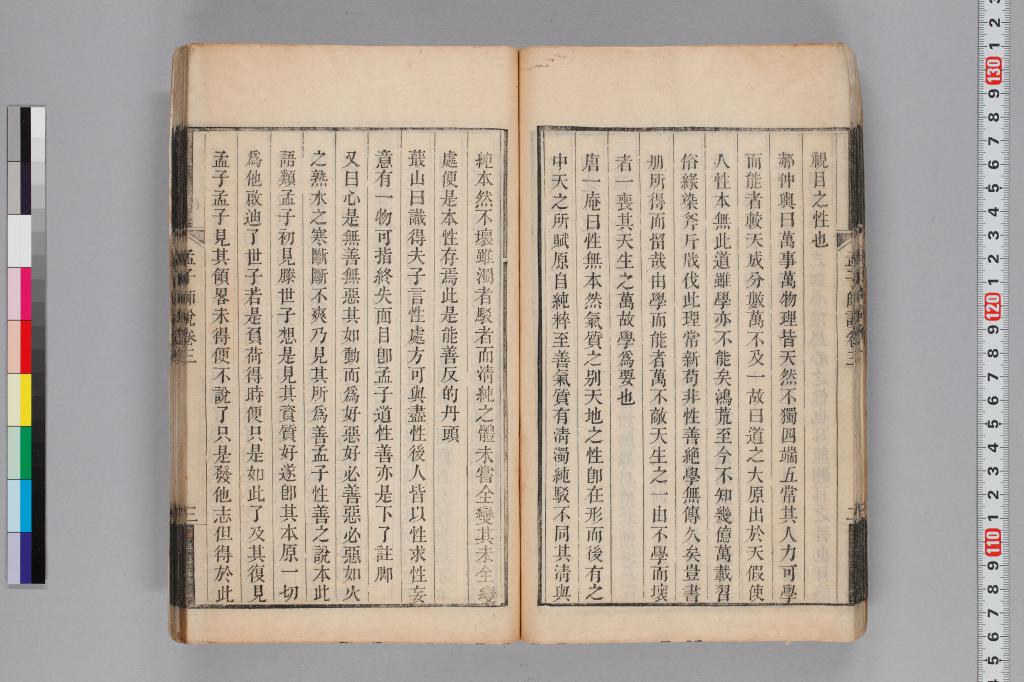 視目之性也
郝仲輿曰萬事萬物理皆天然不獨四端五常其人力可學
而能者較天成分數萬不及一故曰道之大原出於天假使
人性本無此道雖學亦不能矣鴻荒至今不知幾億萬載習
俗緣染斧斤戕伐此理常新苟非性善絕學無傳久矣豈書
册所得而留哉由學而能者萬不敵天生之一由不學而壞
者一喪其天生之萬故學爲要也
唐一庵曰性無本然氣質之别天地之性卽在形而後有之
中天之所賦原自純粹至善氣質有淸濁純駁不同其淸與
純本然不壞雖濁者駁者而淸純之體未嘗全變其未全變
處便是本性存焉此是能善反的丹頭
蕺山曰識得夫子言性處方可與盡性後人皆以性求性妄
意有一物可指終失面目卽孟子道性善亦是下了註脚
又曰心是無善無惡其如動而爲好惡好必善惡必惡如火
之熱水之寒斷斷不爽乃見其所爲善孟子性善之說本此
語類孟子初見滕世子想是見其資質好遂卽其本原一切
爲他啟迪了世子若是負荷得時便只是如此了及其復見
孟子孟子見其領畧未得便不說了只是發他志但得於此
孟子師說卷三
三